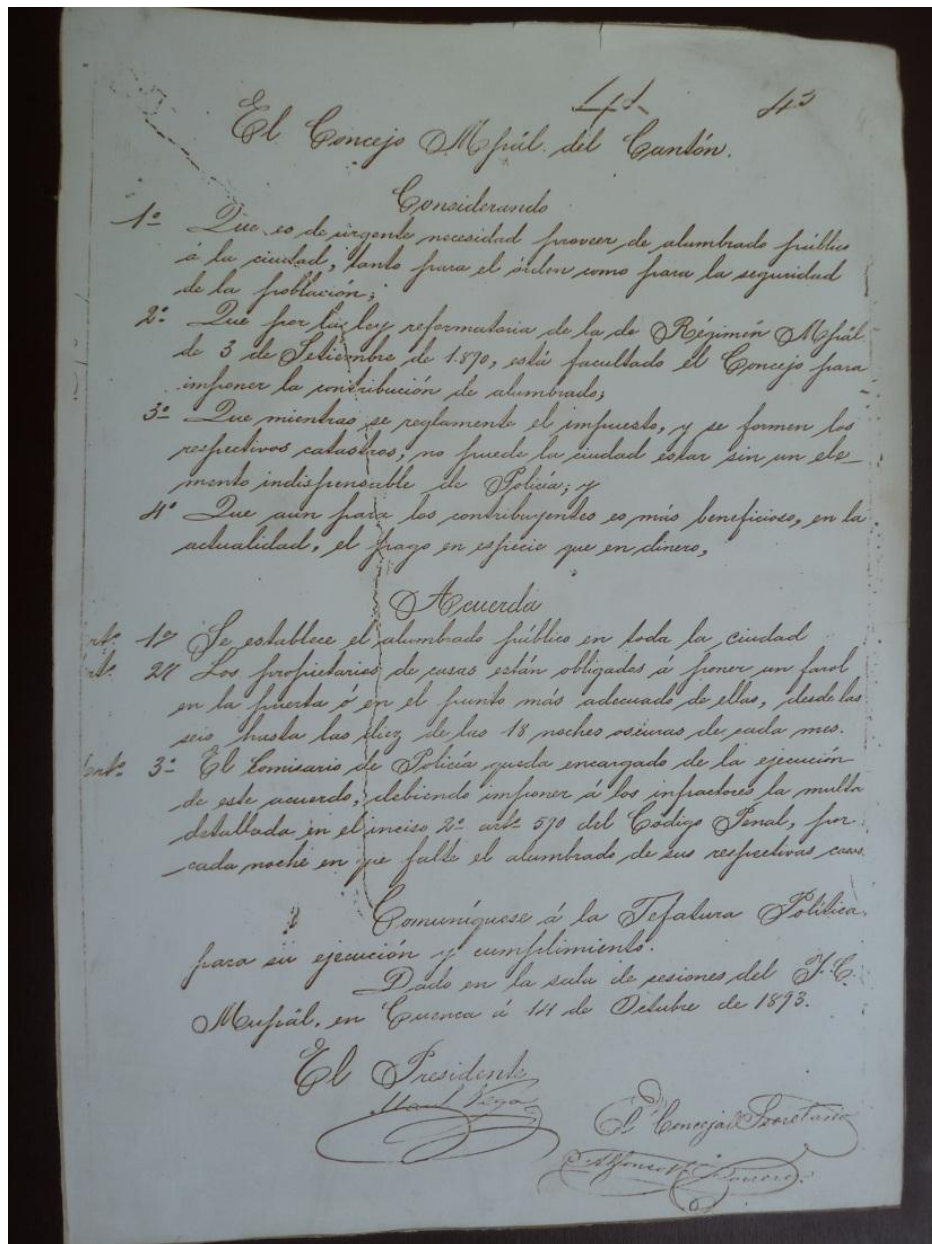 43
El Concejo Mpál. del Cantón.
Considerando
1º Que es de urgente necesidad proveer de alumbrado público
á la ciudad, tanto para el órden como para la seguridad
de la población;
2º Que por la ley reformatoria de la de Régimen Mpál
de 3 de Setiembre de 1890, está facultado el Concejo para
imponer la contribución de alumbrado;
3º Que mientras se reglamente el impuesto, y se formen los
respectivos catastros, no puede la ciudad estar sin un ele-
mento indispensable de Policía; y
4º Que aun para los contribuyentes es más beneficioso, en la
actualidad, el pago en especie que en dinero,
Acuerda
rtº 1º Se establece el alumbrado público en toda la ciudad
rtº 2º Los propietarios de casas están obligados á poner un farol
en la puerta ó en el punto más adecuado de ellas, desde las
seis hasta las diez de las 18 noches oscuras de cada mes.
Artº 3º El Comisario de Policía queda encargado de la ejecución
de este acuerdo, debiendo imponer á los infractores la multa
detallada en el inciso 2º artº 590 del Código Penal, por
cada noche en que falte el alumbrado de sus respectivas casas.
Comuníquese á la Jefatura Política
para su ejecución y cumplimiento.
Dado en la sala de sesiones del I. C.
Munpál. en Cuenca á 14 de Octubre de 1893.
El Presidente
Manl Vega
El Concejal Secretario
Alfonso Borrero